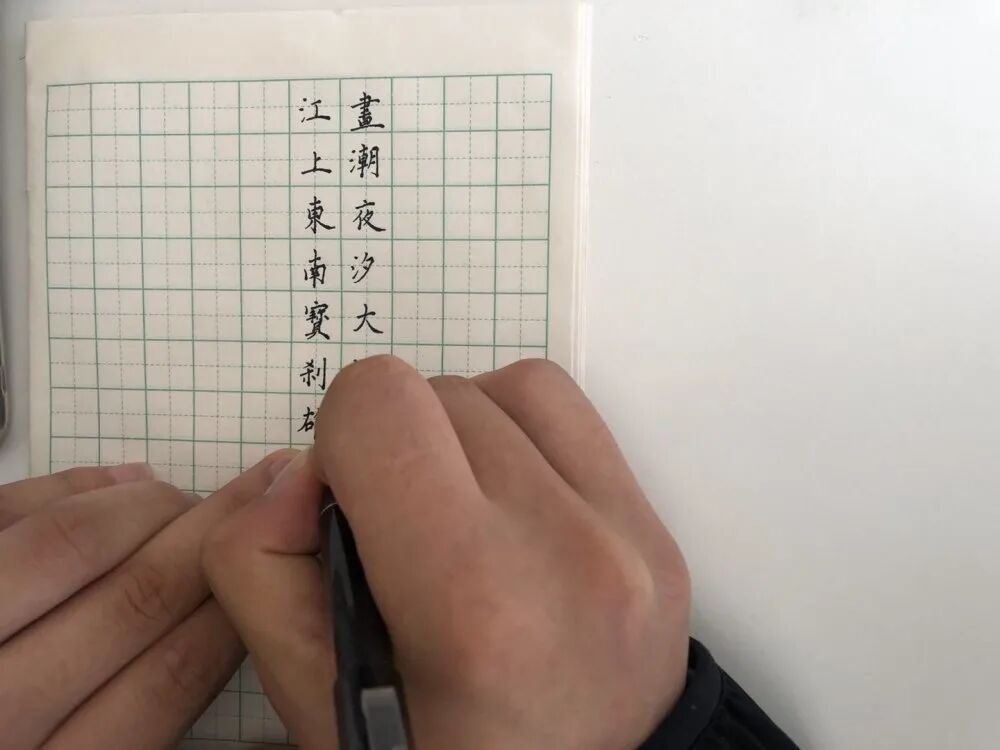 畫潮夜汐大
江上東南寶刹